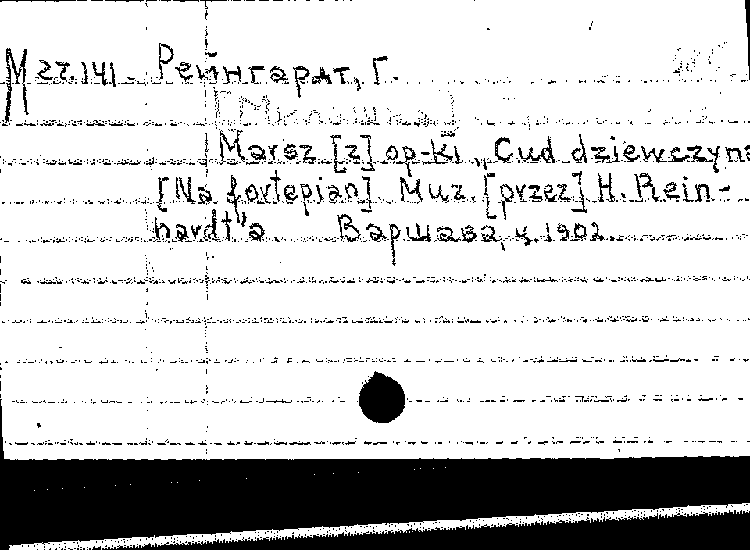 М 22.141. Рейнгардт, Г.
[Милушка]
Marsz [z] op-ki „Cud dziewczyna
[Na fortepian] Muz. [przez] H. Rein-
hardt"a Варшава, ц. 1902.